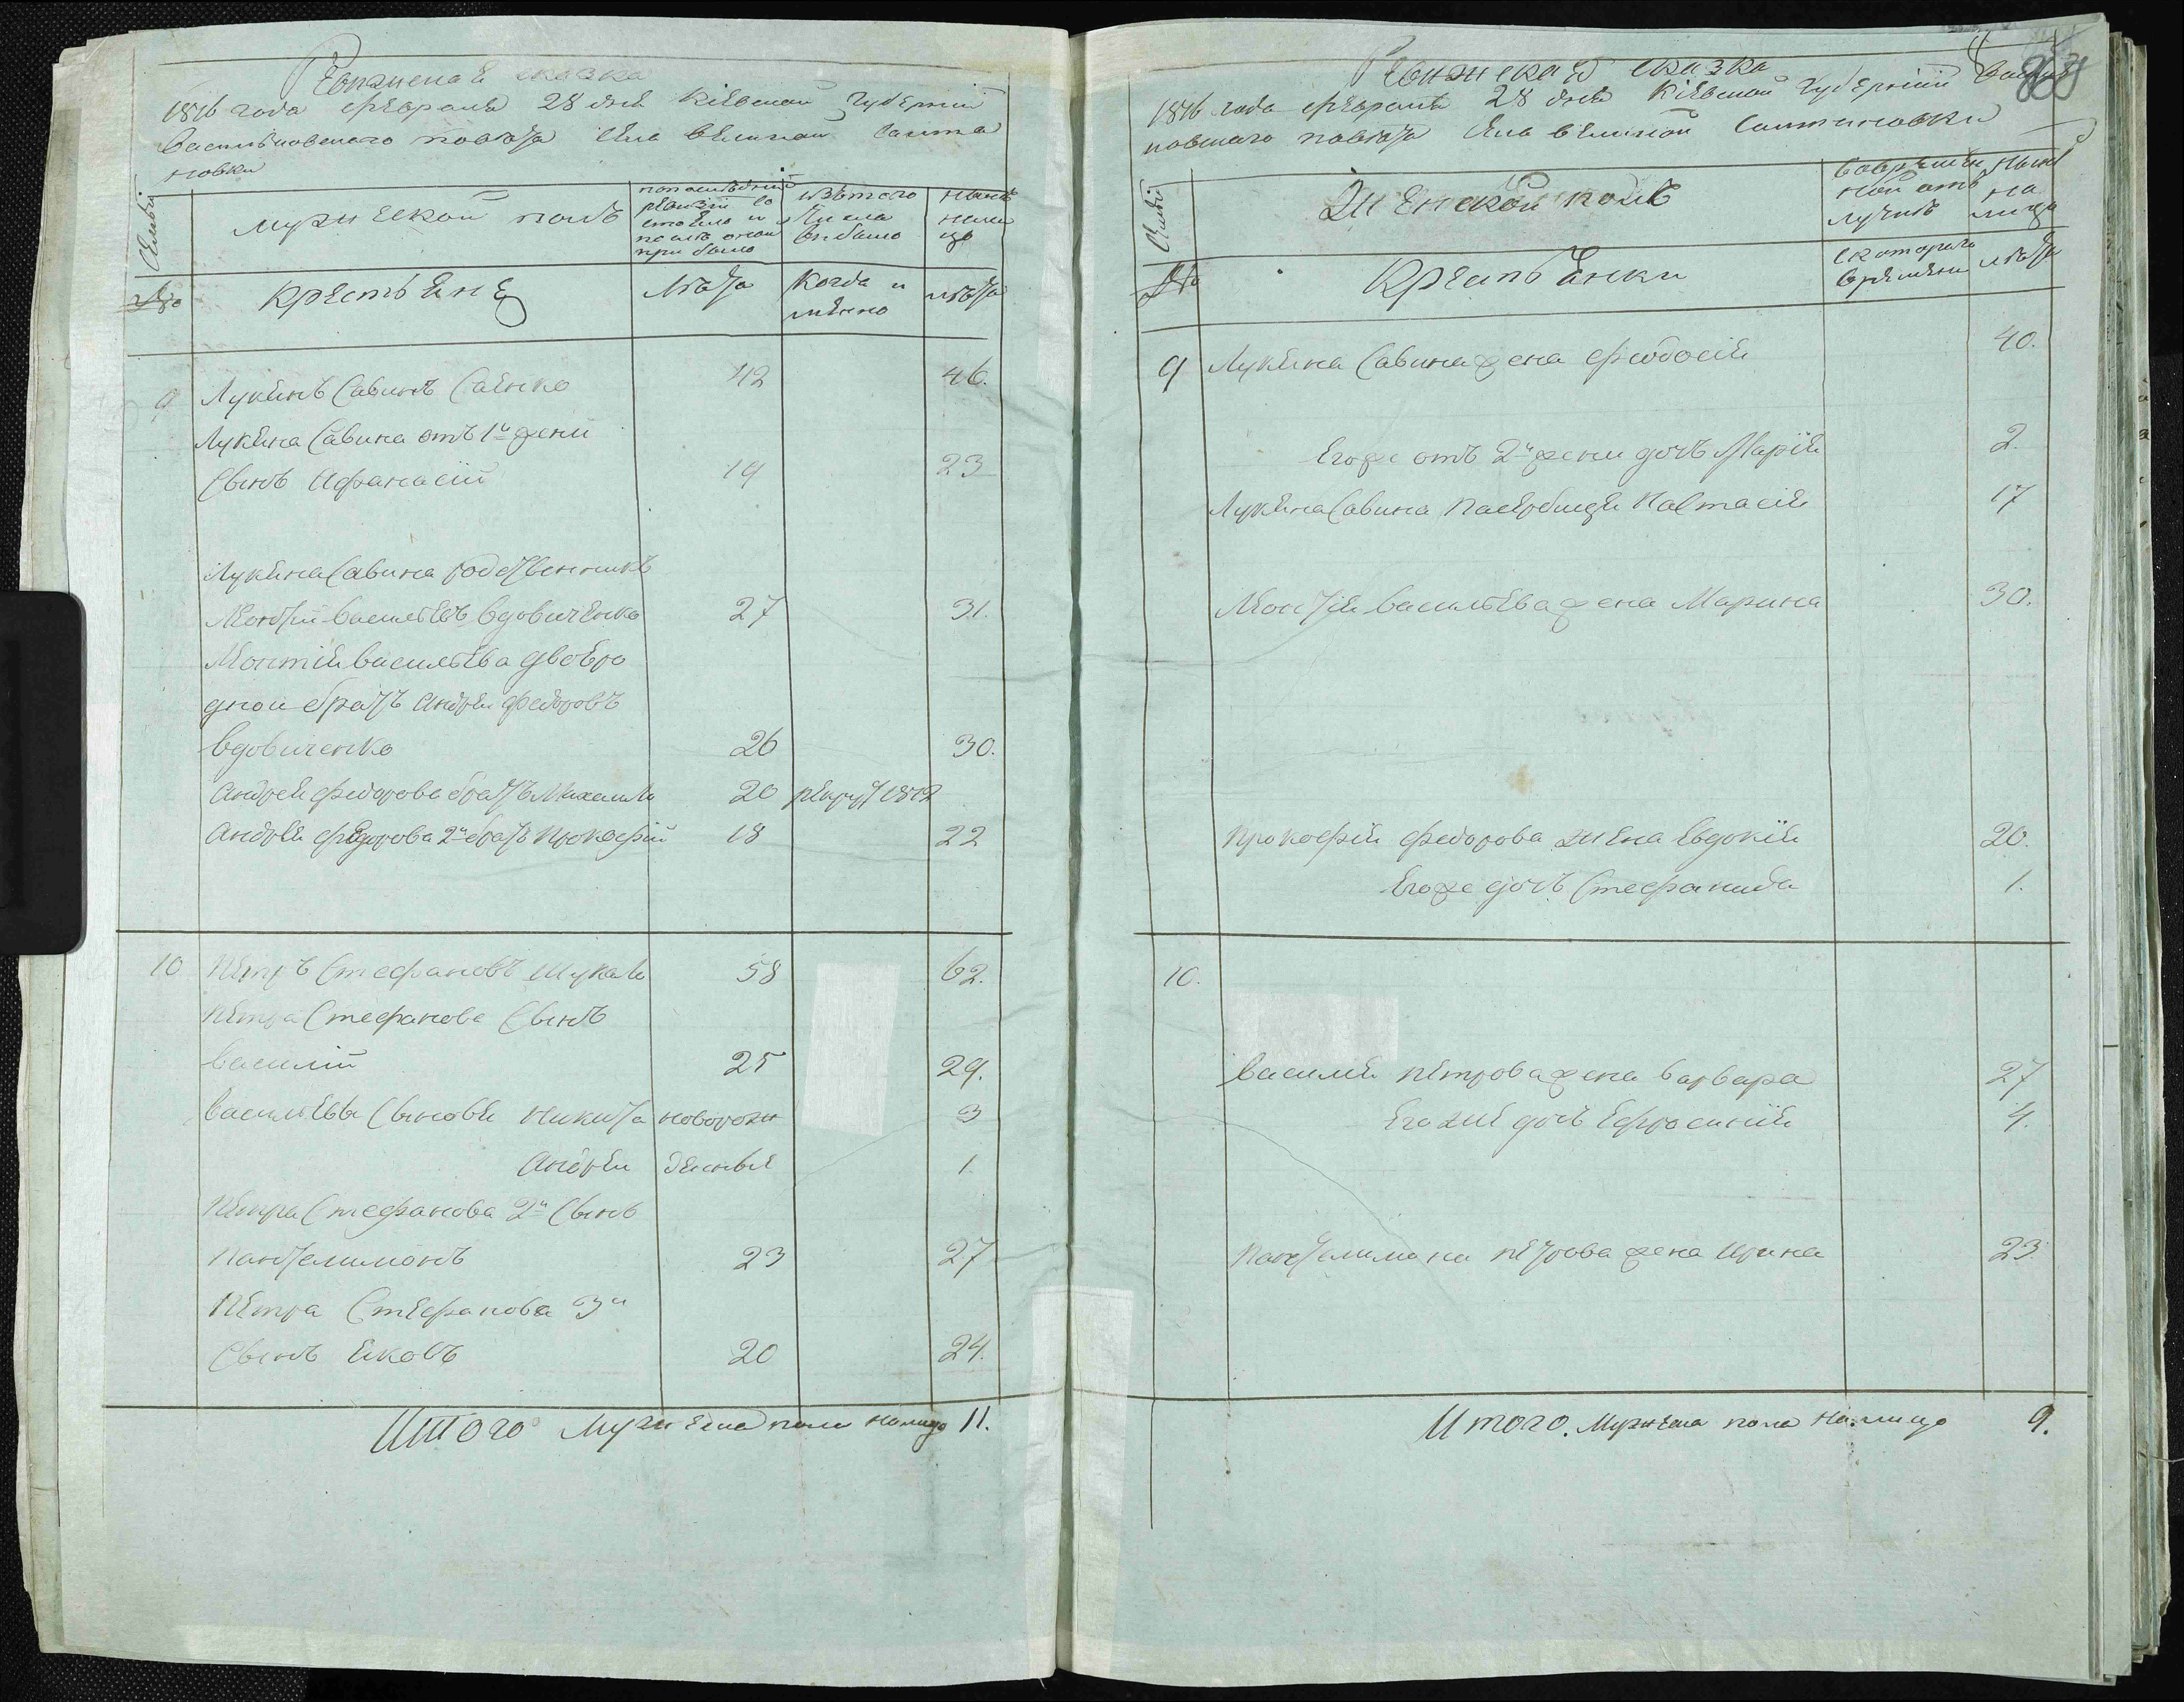 Ревижская сказка
1816 года февраля 28 дня Кіевской Губерніи
Васильковского повѣта села великой Салта
новки
Семьи
мужеской полъ
по послѣдней
ревизіи со
стояло и
послѣ оной
прибыло
изъ того
числа
выбыло
нынѣ
нали
цо
№
крестьяне
лѣта
когда и
менно
лѣта
9 Лукянъ Савинъ Саенко 42 46.
Лукяна Савина отъ 1й жени
Сынъ Афанасій 19 23
Лукяна Савина родственникъ
Леонтій васильевъ вдовиченко 27 31.
Леонтія васильева двоюро
дной братъ Андрей федоровъ
вдовиченко 26 30.
Андрея федорова братъ Михаила 20 рекрут 1812
Андрея федорова 2й братъ Прокофій 18 22
10 Петръ Стефановъ Шукало 58 62.
Петра Стефанова Сынъ
василій 25 29.
васильевы Сыновья Никита новорож 3
Андрей денные 1.
Петра Стефанова 2й Сынъ
Пантелимонъ 23 27
Петра Стефанова 3й
Сынъ Яковъ 20 24.
Итого Мужеска пола налицо 11.
Ревижская сказка
1816 года февраля 28 дня Кіевской Губерніи Василь
ковского повѣта села великой Салтановки
Семьи
женской полъ
во времян
ной отъ
лучкѣ
нынѣ
на
лицо
№
Крестьянки
с которого
времяни
лѣта
9 Лукяна Савина жена феодосія 40.
Егоже отъ 2й жени дочь Марія 2.
Лукяна Савина Пасербица Настасія 17
Леонтія васильева жена Марина 30.
Прокофія федорова жена Евдокія 20.
Егоже дочь Стефанида 1.
10.
василія петрова жена варвара 27
Егоже дочь Ефросинія 4.
Пантелимона петрова жена Ирина 23.
Итого. Мужеска пола На лицо 9.